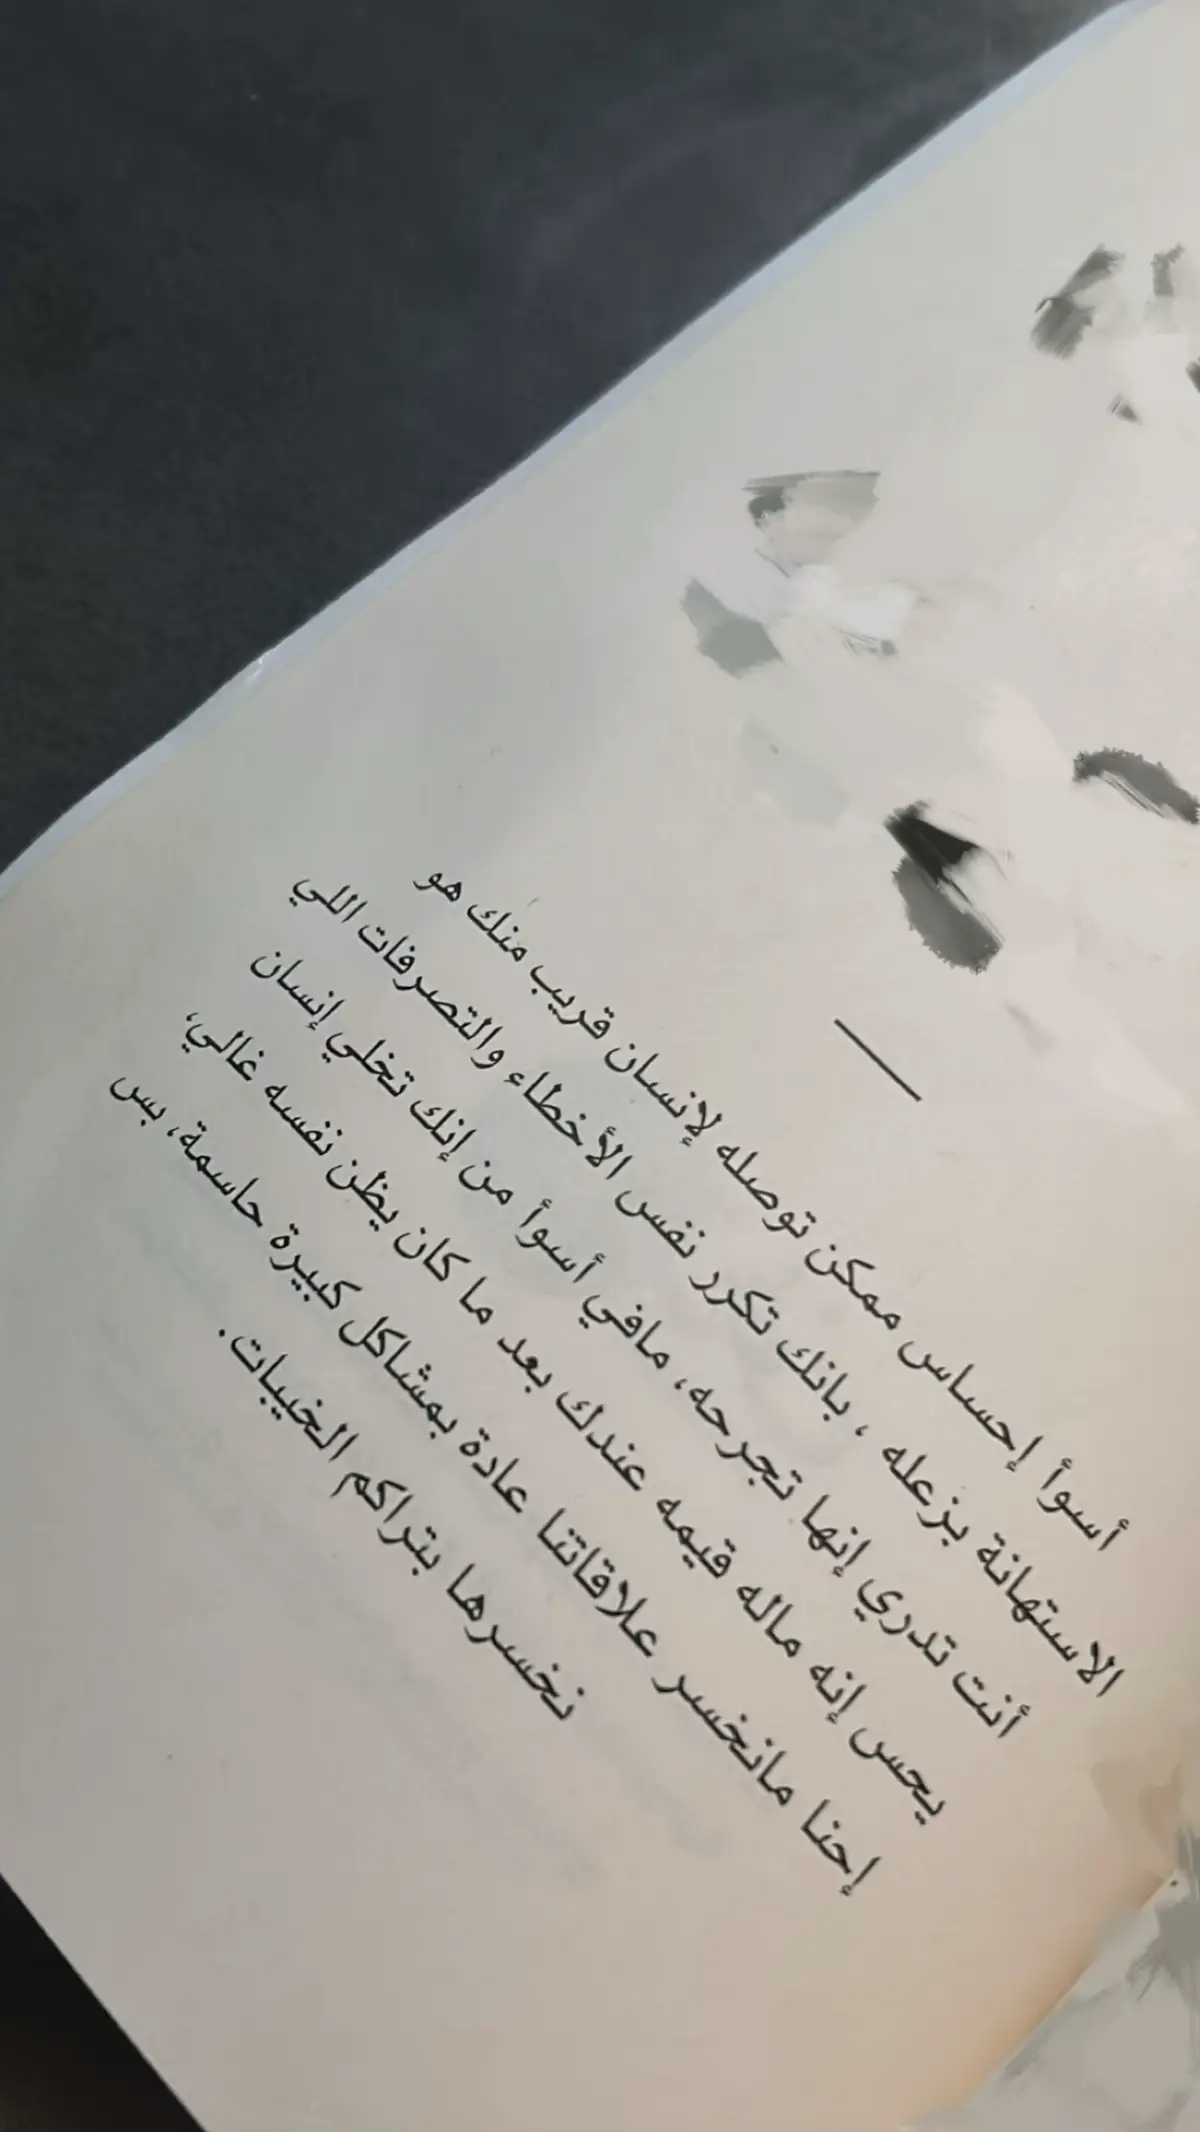 أسوأ إحساس ممكن توصله لإنسان قريب منك هو
الاستهانة بزعله ، بانك تكرر نفس الأخطاء والتصرفات اللي
أنت تدري إنها تجرحه، مافي أسوأ من إنك تخلي إنسان
يحس إنه ماله قيمه عندك بعد ما كان يظن نفسه غالي،
إحنا مانخسر علاقاتنا عادة بمشاكل كبيرة حاسمة، بس
نخسرها بتراكم الخيبات.